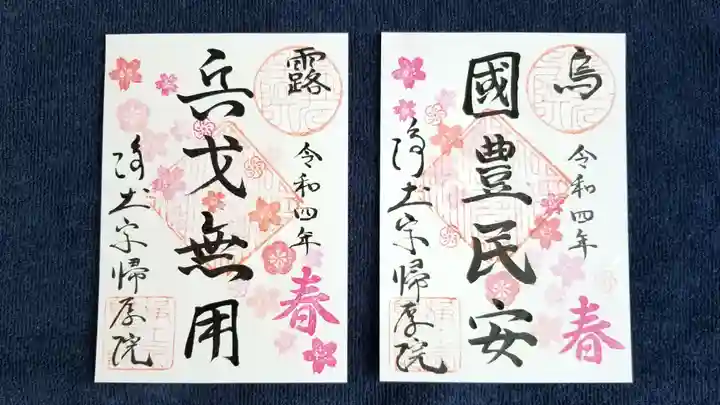 露
令和四年
春
兵戈無用
浄土宗帰厚院
烏
令和四年
春
國豊民安
浄土宗帰厚院